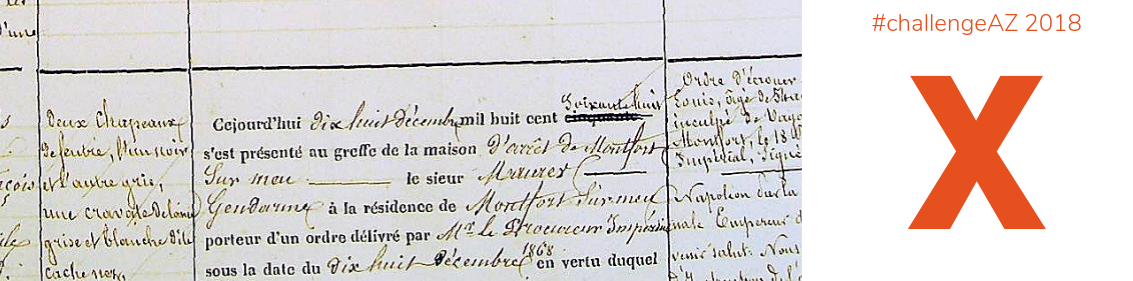 d'une
deux chapeaux
de feutre, l'un noir
et l'autre gris,
une cravate de laine
grise et blanche dite
cache nez,
Cejourd'hui dix huit décembre mil huit cent cinquante soixante huit
s'est présenté au greffe de la maison d'arrêt de Montfort
sur meu le sieur
Gendarme à la résidence de Montfort sur meu
porteur d'un ordre délivré par Mr le Procureur Impérial
sous la date du dix huit décembre 1868 en vertu duquel
Ordre d'écrouer
Louis, âgé de
inculpé de
Montfort, le 18
Impérial, signé
Napoléon par la
nale Empereur d
venir salut. Nous
#challengeAZ 2018
X